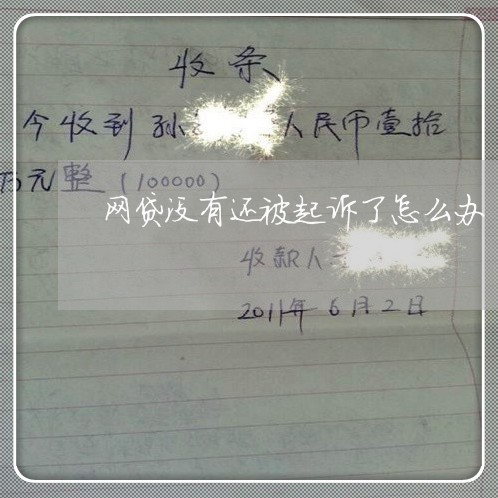 收条
今收到孙 人民币壹拾
万元整(100000)
网贷没有还被起诉了怎么办
收款人
2011年6月2日